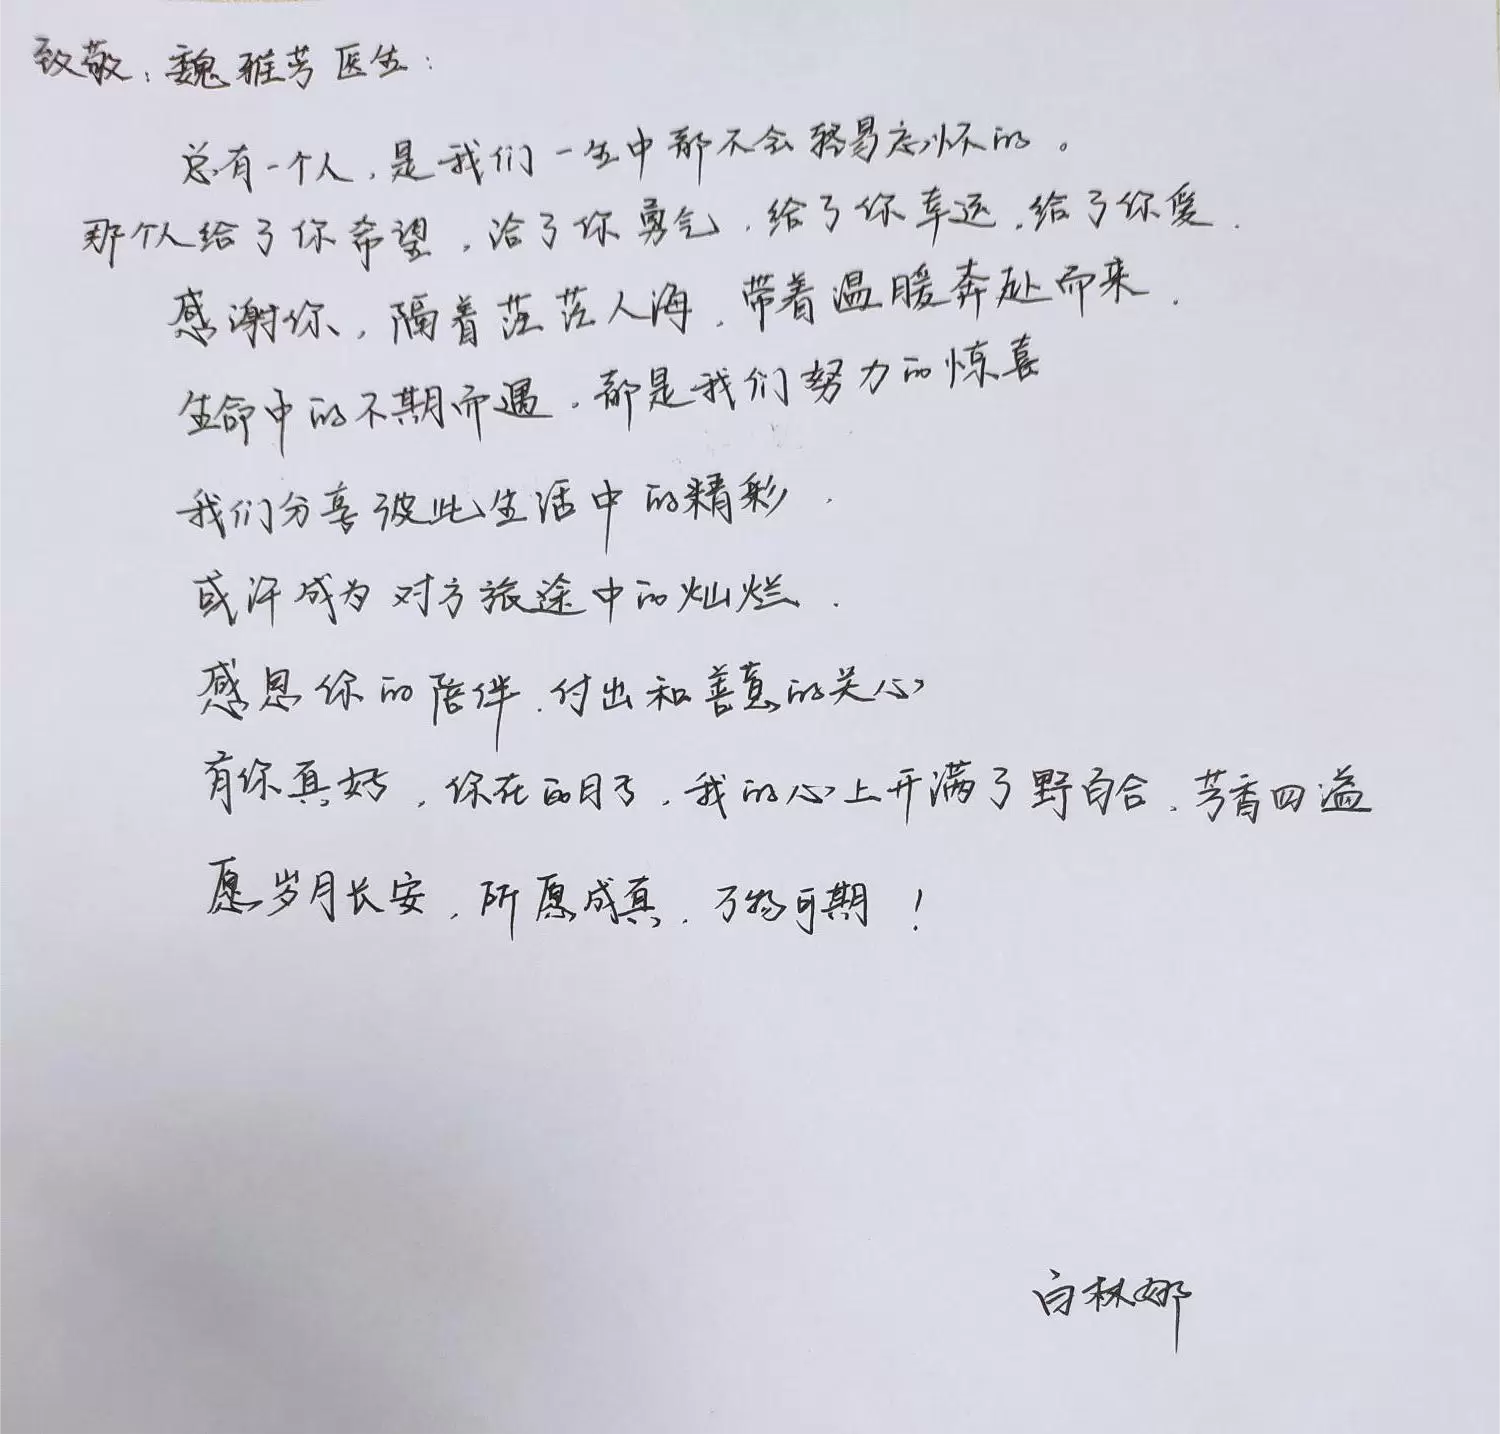 致敬：魏雅芳医生：
总有一个人，是我们一生中都不会轻易忘怀的。
那个人给了你希望，给了你勇气，给了你幸运，给了你爱．
感谢你，隔着茫茫人海，带着温暖奔赴而来．
生命中的不期而遇．都是我们努力的惊喜
我们分享彼此生活中的精彩．
或许成为对方旅途中的灿烂．
感恩你的陪伴．付出和善意的关心
有你真好，你在的日子，我的心上开满了野百合．芳香四溢
愿岁月长安，所愿成真．万物可期！
白林娜